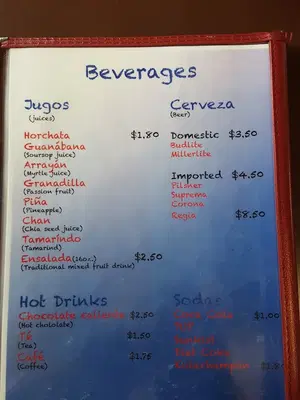 Beverages
Jugos
(juices)
Horchata $1.80
Guanábana
(Soursop juice)
Arrayán
(Myrtle juice)
Granadilla
(Passion fruit)
Piña
(Pineapple)
Chan
(Chia seed juice)
Tamarindo
(Tamarind)
Ensalada(16oz.) $2.50
(Traditional mixed fruit drink)
Cerveza
(Beer)
Domestic $3.50
Budlite
Millerlite
Imported $4.50
Pilsner
Suprema
Corona
Regia $8.50
Hot Drinks
Chocolate caliente $2.50
(Hot chololate)
Té $1.50
(Tea)
Café $1.75
(Coffee)
Sodas
$1.00